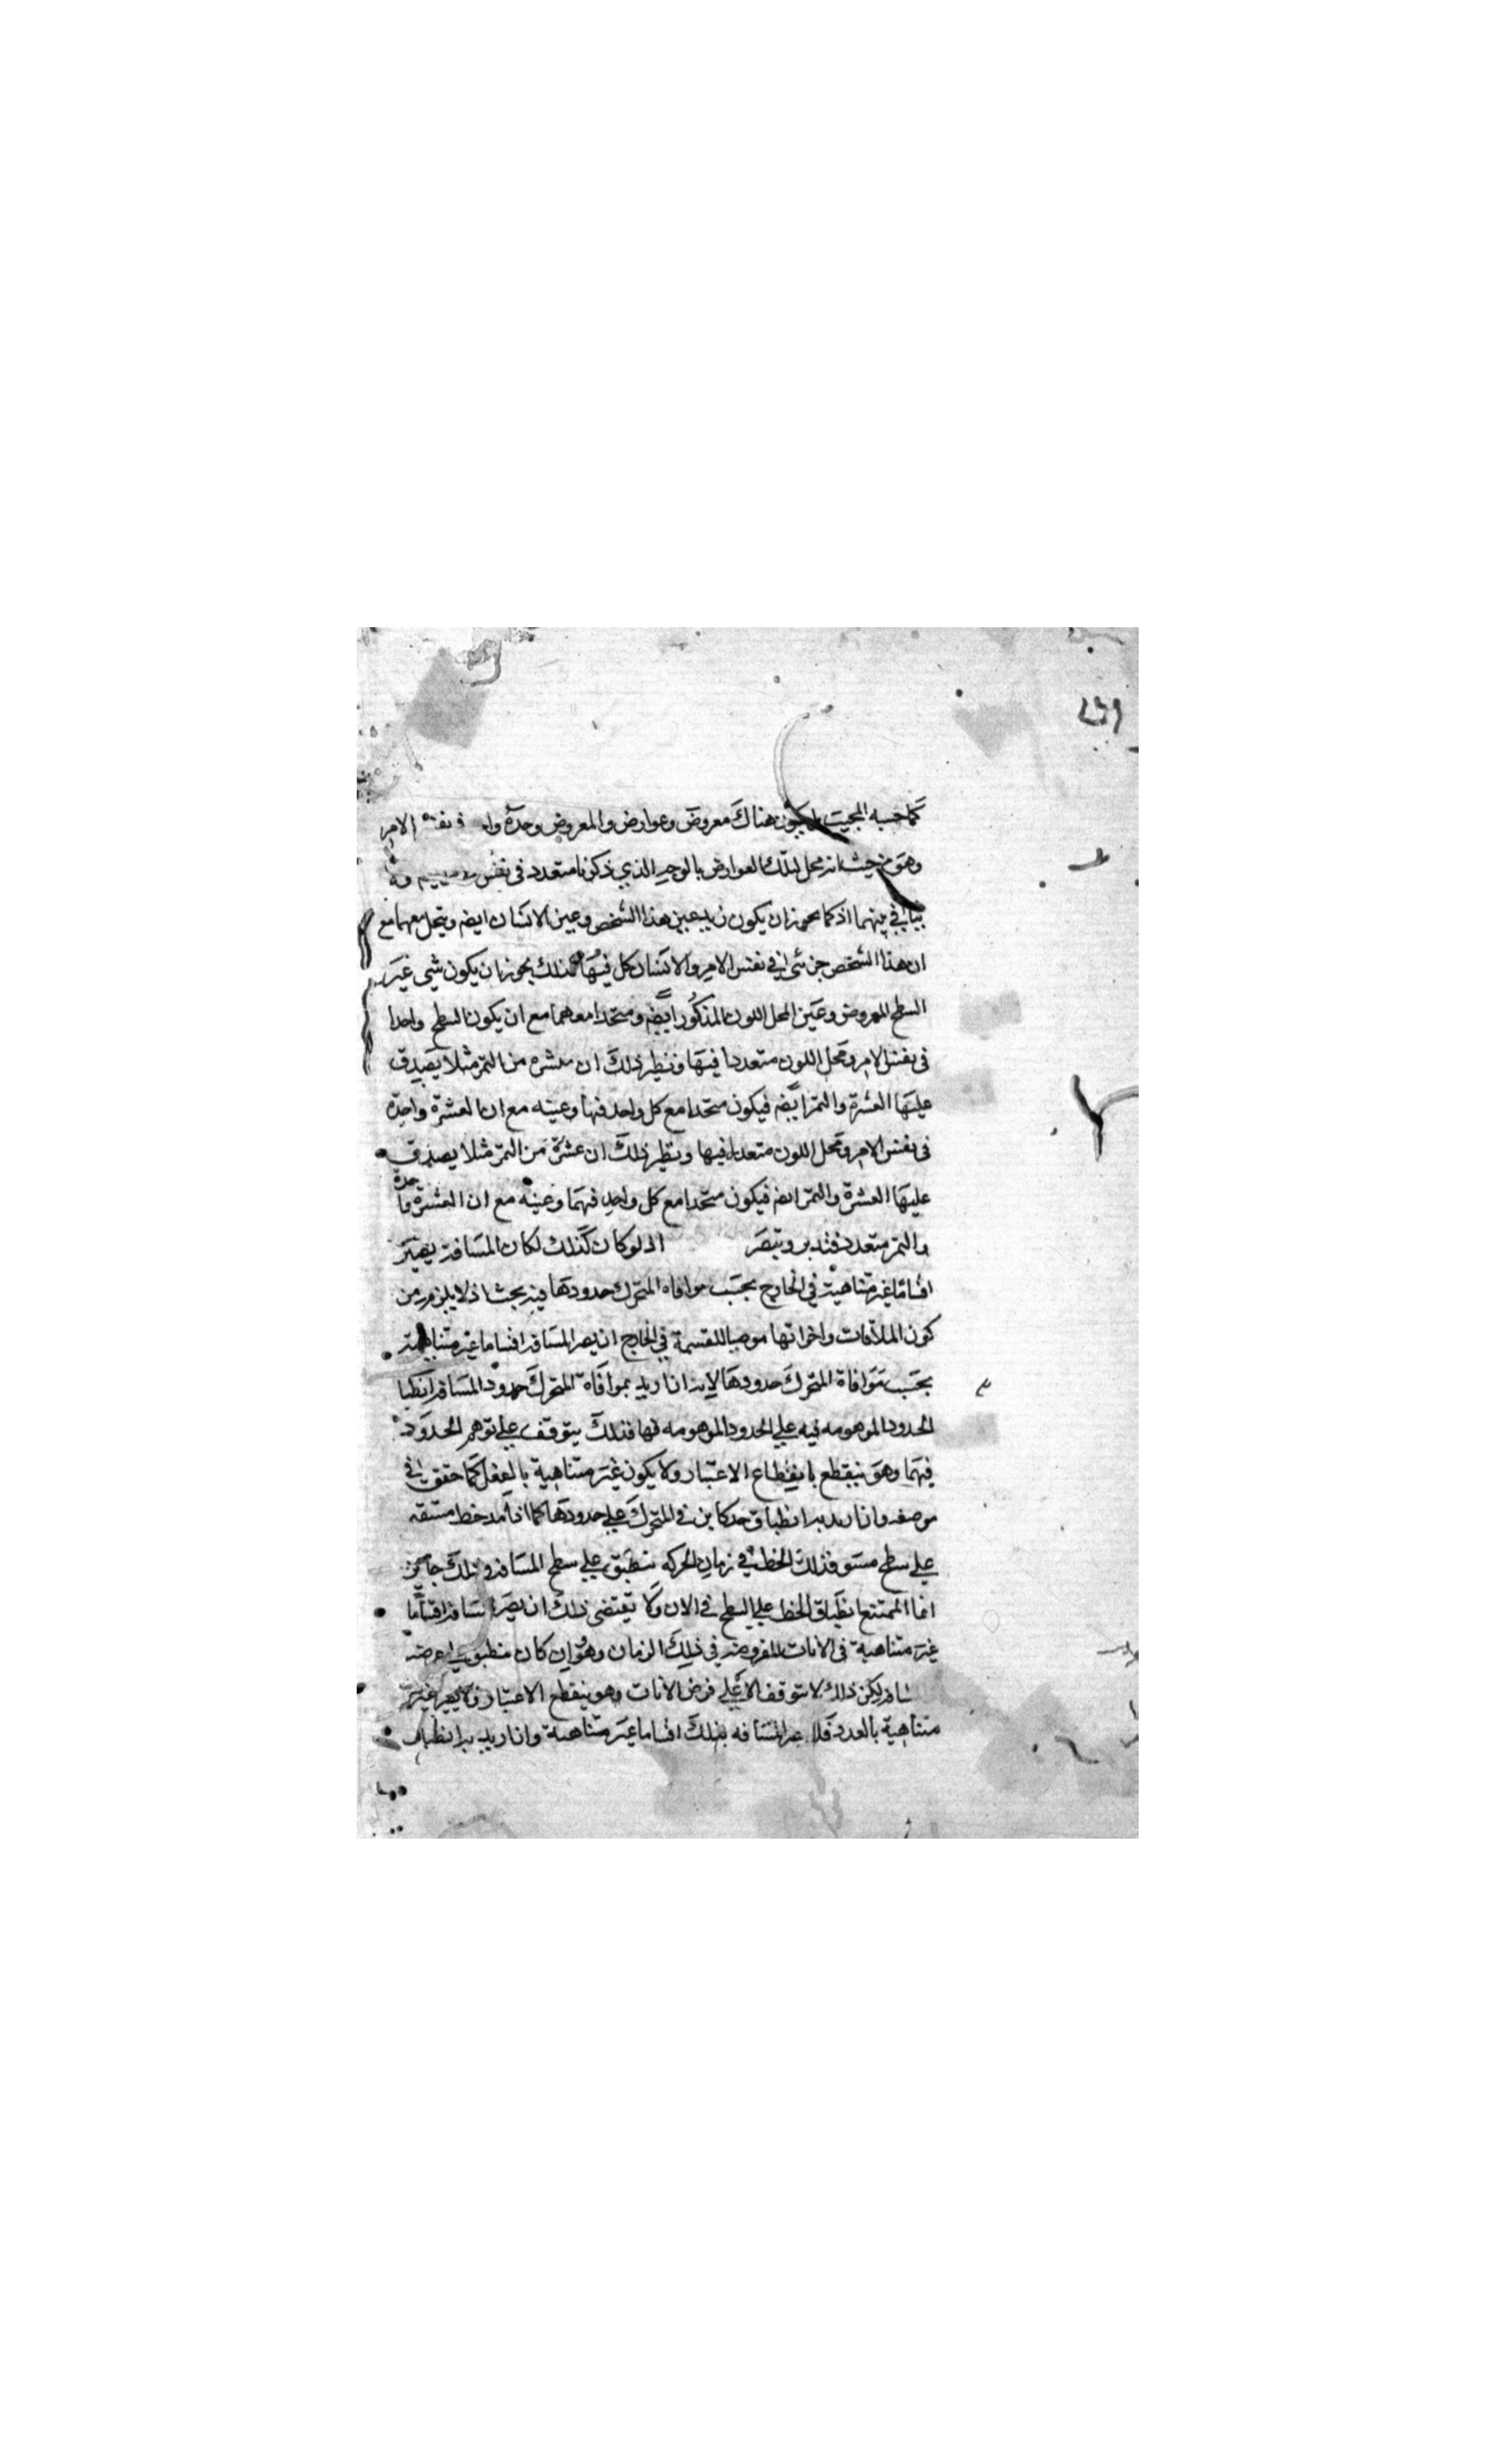 كما حسبه المجيب بل يكون هناك معروض وعوارض والمعروض وحدة الامر
وهو من حيث انه محل لتلك العوارض بالوجه الذي ذكرنا متعدد في نفس
بينهما اذ كما يجوز ان يكون زيد عين هذا الشخص وعين الانسان ايضم ويتحل معهما مع
ان هذا الشخص جزئي في نفس الامر والانسان كل فيها كذلك يجوز ان يكون شي غير
السطح المعروض وعين المحل اللون المذكور ايضم ومتحدا معهما مع ان يكون السطح واحدا
في نفس الامر ومحل اللون متعددا فيها ونظير ذلك ان عشره من التمر مثلا يصدق
عليها العشرة والتمر ايضم فيكون متحدا مع كل واحد فنها وعينه مع ان العشرة واحدة
في نفس الامر ومحل اللون متعددا فيها ونظير ذلك ان عشرة من التمر مثلا يصدق
عليها العشرة والتمر ايضم فيكون متحدا مع كل واحد فهما وعينه مع ان العشرة واحدة
والتمر متعدد فتدبر وتبصر اذ لو كان كذلك لكان المسافة يصير
اقساما غير متناهية في الخارج بحسب موافاه المتحرك حدودها فيه بحث اذ لا يلزم من
كون الملاقات واخراتها موجبا للقسمة في الخارج ان يصير المسافة اقساما غير متناهية
بحسب موافاة المتحرك حدودها لانه ان اريد بموافاة المتحرك حدود المسافة انطبا
الحدود الموهومه فيه علي الحدود الموهومه فيها فذلك يتوقف علي توهم الحدود
فيهما وهو ينقطع بانقطاع الاعتبار ولا يكون غير متناهية بالفعل كما حقق في
موضعه وان اريد به انطباق حد كاين في المتحرك علي حدودها كما اذا مد خط مستقه
علي سطح مستو فذلك الخط في زمان الحركه ينطبق علي سطح المسافة وذلك جايز
انما الممتنع انطباق الخط علي السطح في الان ولا يقتضي ذلك ان يصير المسافة اقساما
غير متناهية في الانات المفروضه في ذلك الزمان وهو وان كان منطبق
لكن ذلك لا يتوقف الا علي فرض الانات وهو ينقطع الاعتبار ولا يصير غير
متناهية بالعدد فلا يصير المسافه بذلك اقساما غير متناهية وان اريد به انطباق